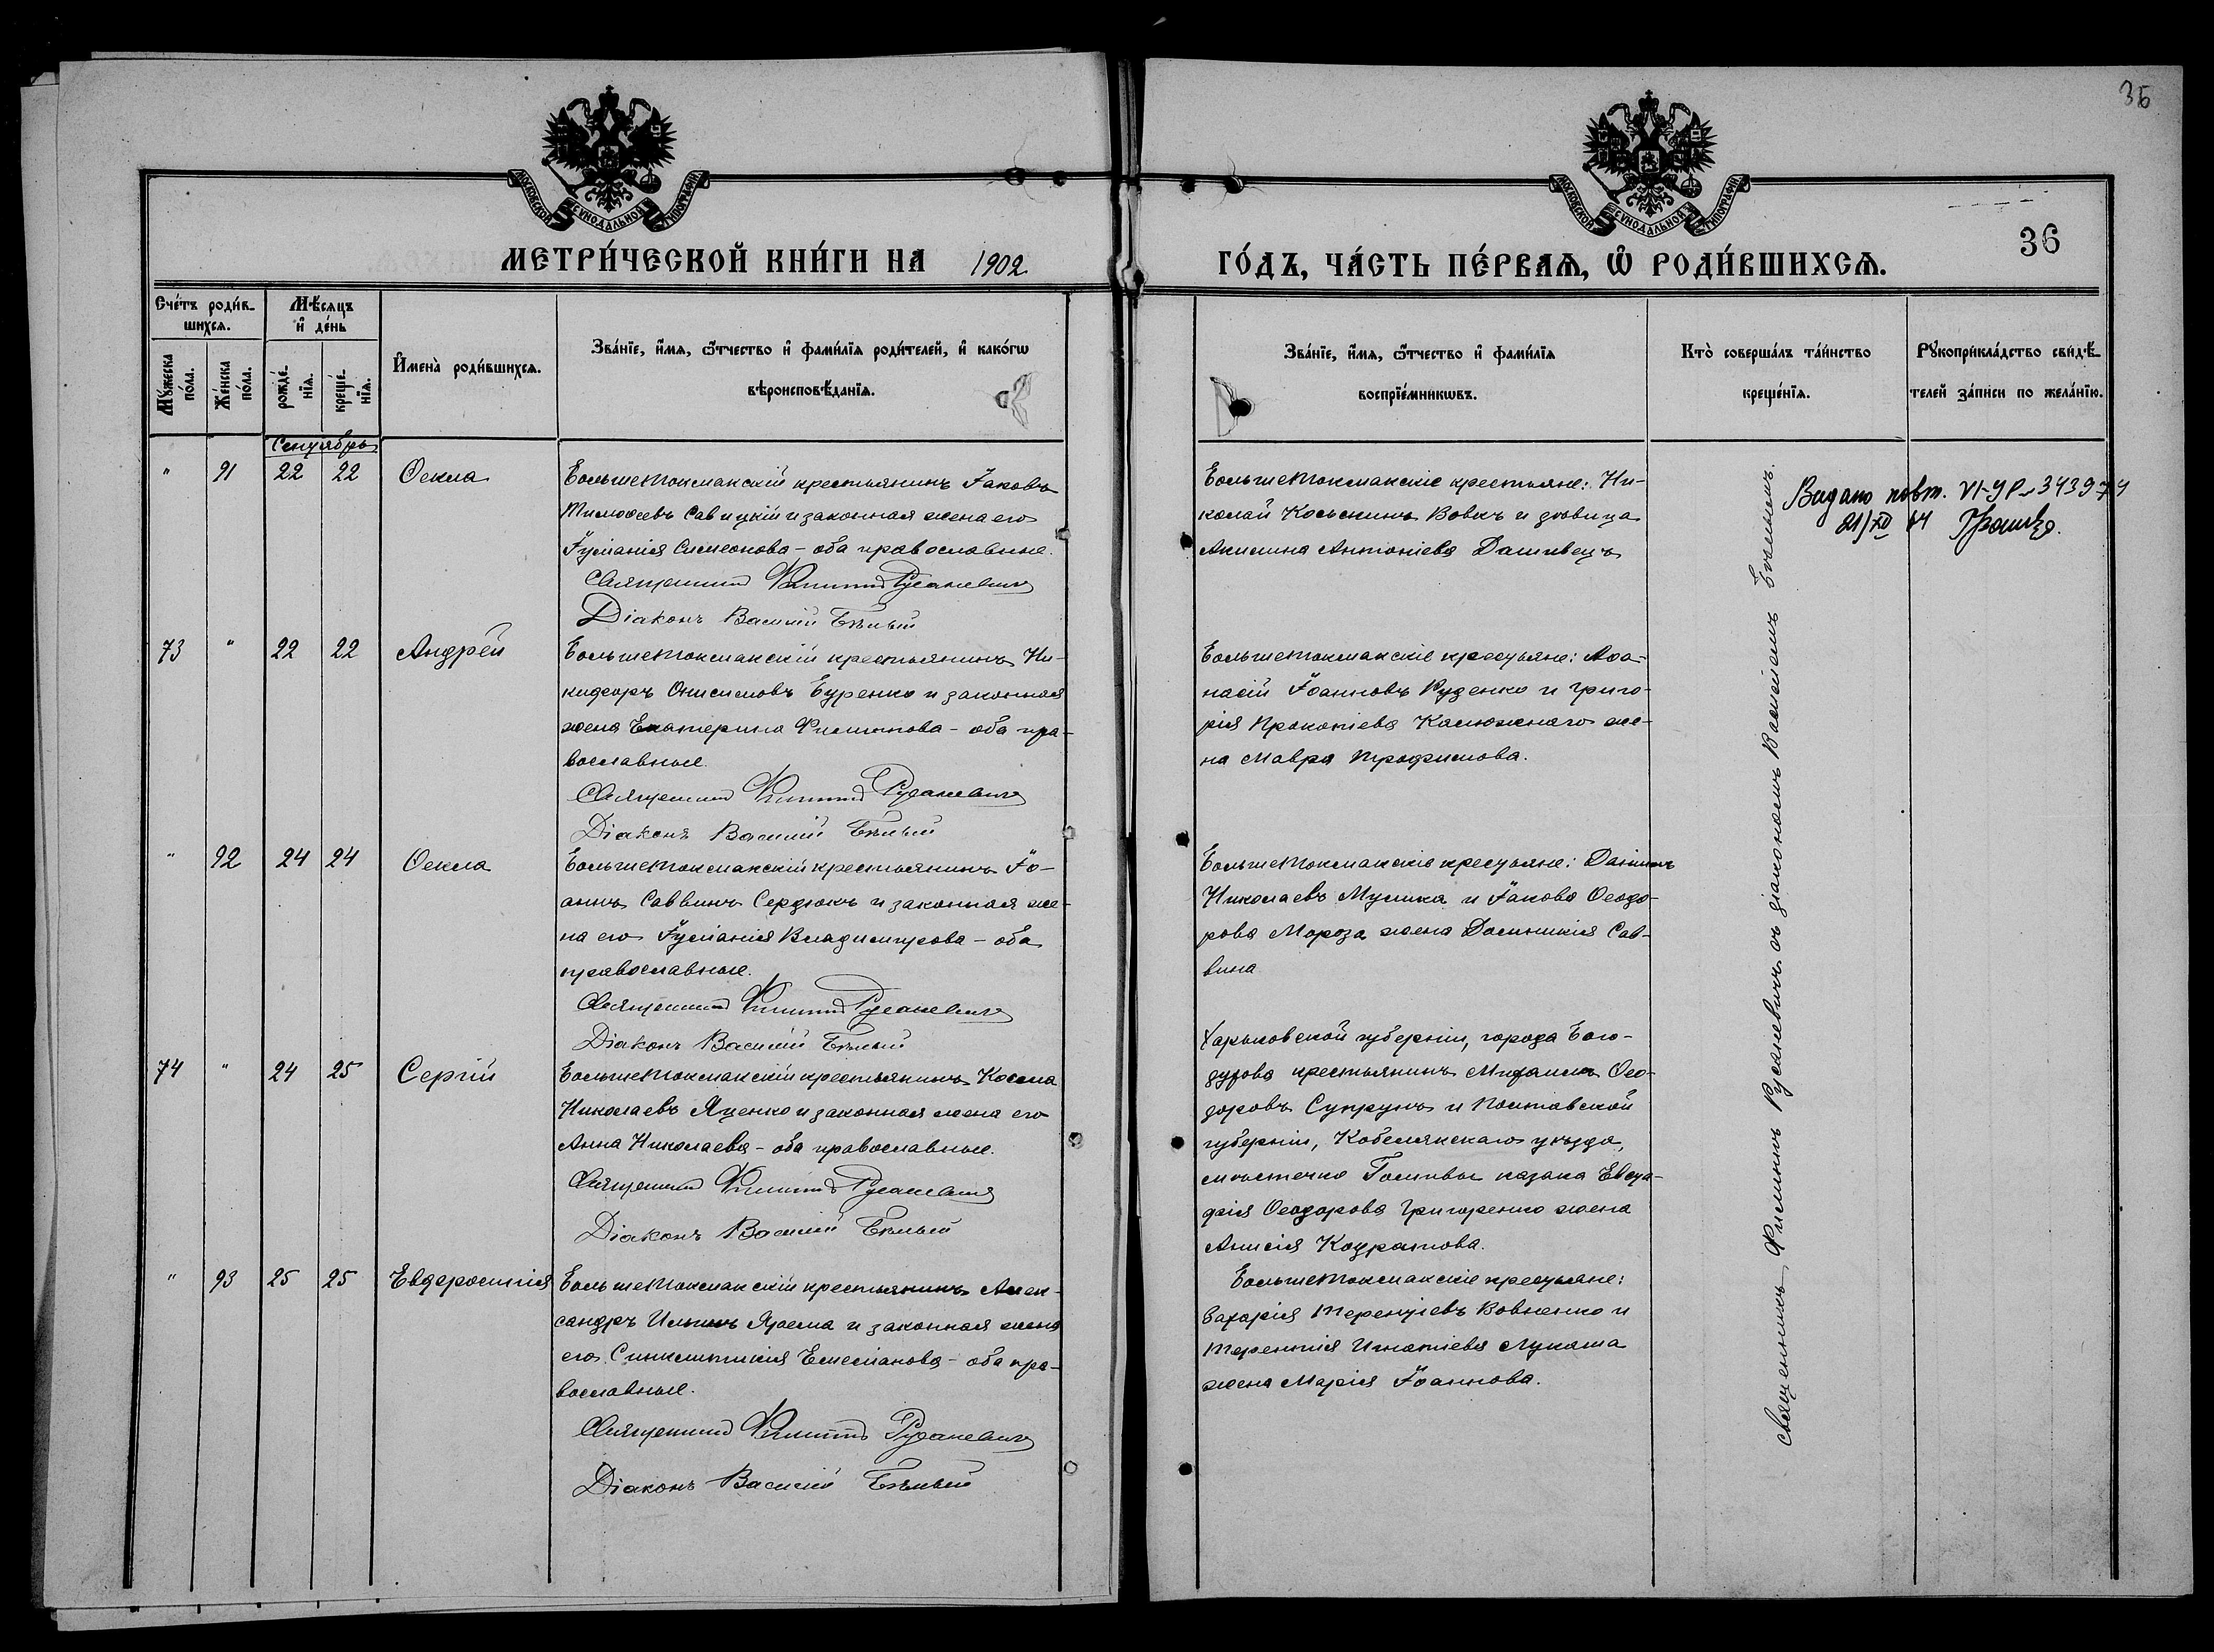 36
МОСКОВСКОЙ СѴНОДАЛЬНОЙ ТИПОГРАФІИ
МОСКОВСКОЙ СѴНОДАЛЬНОЙ ТИПОГРАФІИ
36
МЕТРИ́ЧЕСКОЙ КНИ́ГИ НА 1902
ГО́ДЪ, ЧА́СТЬ ПЕ́РВАѦ, Ѡ РОДИ́ВШИХСѦ.
Сче́тъ роди́в-
шихсѧ.
Мѣсѧцъ
и де́нь
Мꙋжеска по́ла.
Же́нска по́ла.
рожде́-нїѧ.
креще́-нїѧ.
И҆мена̀ роди́вшихсѧ.
Зва́нїе, и҆́мѧ, ѻ҆́тчество и҆ фами́лїѧ роди́телей, и҆ како́гѡ
вѣроисповѣ́данїѧ.
Зва́нїе, и҆́мѧ, ѻ҆́тчество и҆ фами́лїѧ
воспрїе́мникѡвъ.
Кто̀ соверша́лъ та́инство
креще́нїѧ.
Рꙋкоприкла́дство свидѣ́-
телей за́писи по жела́нїю.
Сентябрь
" 91 22 22 Ѳекла
Большетокмакскій крестьянинъ Іаковъ
Тимоѳеевъ Савицкій и законная жена его
Іуліанія Симеонова - оба православные.
Священникъ Филиппъ Русаневичъ
Діаконъ Василій Бѣлый
Большетокмакскіе крестьяне: Ни-
колай Косьминъ Вовкъ и вдовица
Акилина Антоніева Дашивецъ
Видано повт. VI-УР № 343974
21/XII 64
73 " 22 22 Андрей
Большетокмакскій крестьянинъ Ни-
кифоръ Онисимовъ Буренко и законная
жена Екатерина Филиппова - оба пра-
вославные.
Священникъ Филиппъ Русаневичъ
Діаконъ Василій Бѣлый
Большетокмакскіе крестьяне: Аѳа-
насій Іоанновъ Руденко и Григо-
рія Прокопіева Калюжнаго же-
на Мавра Трофимова.
" 92 24 24 Ѳекла
Большетокмакскій крестьянинъ Іо-
аннъ Саввинъ Сердюкъ и законная же-
на его Іуліанія Владимірова - оба
православные.
Священникъ Филиппъ Русаневичъ
Діаконъ Василій Бѣлый
Большетокмакскіе крестьяне: Даніилъ
Николаевъ Мулика и Іакова Ѳеодо-
рова Мороза жена Домникія Сав-
вина
74 " 24 25 Сергій
Большетокмакскій крестьянинъ Косма
Николаевъ Яценко и законная жена его
Анна Николаева - оба православные.
Священникъ Филиппъ Русаневичъ
Діаконъ Василій Бѣлый
Харьковской губерніи, города Бого-
духова крестьянинъ Михаилъ Ѳео-
доровъ Супрунъ и Полтавской
губерніи, Кобелякскаго уѣзда,
мѣстечка Голтвы казака Евста-
фія Ѳеодорова Григоренко жена
Анисія Кондратова.
" 93 25 25 Евфросинія
Большетокмакскій крестьянинъ Алек-
сандръ Ильинъ Ярема и законная жена
его Синклитикія Емеліанова - оба пра-
вославные.
Священникъ Филиппъ Русаневичъ
Діаконъ Василій Бѣлый
Большетокмакскіе крестьяне:
Захарія Терентіевъ Вовненко и
Терентія Игнатіева Лукаша
жена Марія Іоаннова.
Священникъ Филиппъ Русаневичъ съ діакономъ Василіемъ Бѣлымъ.